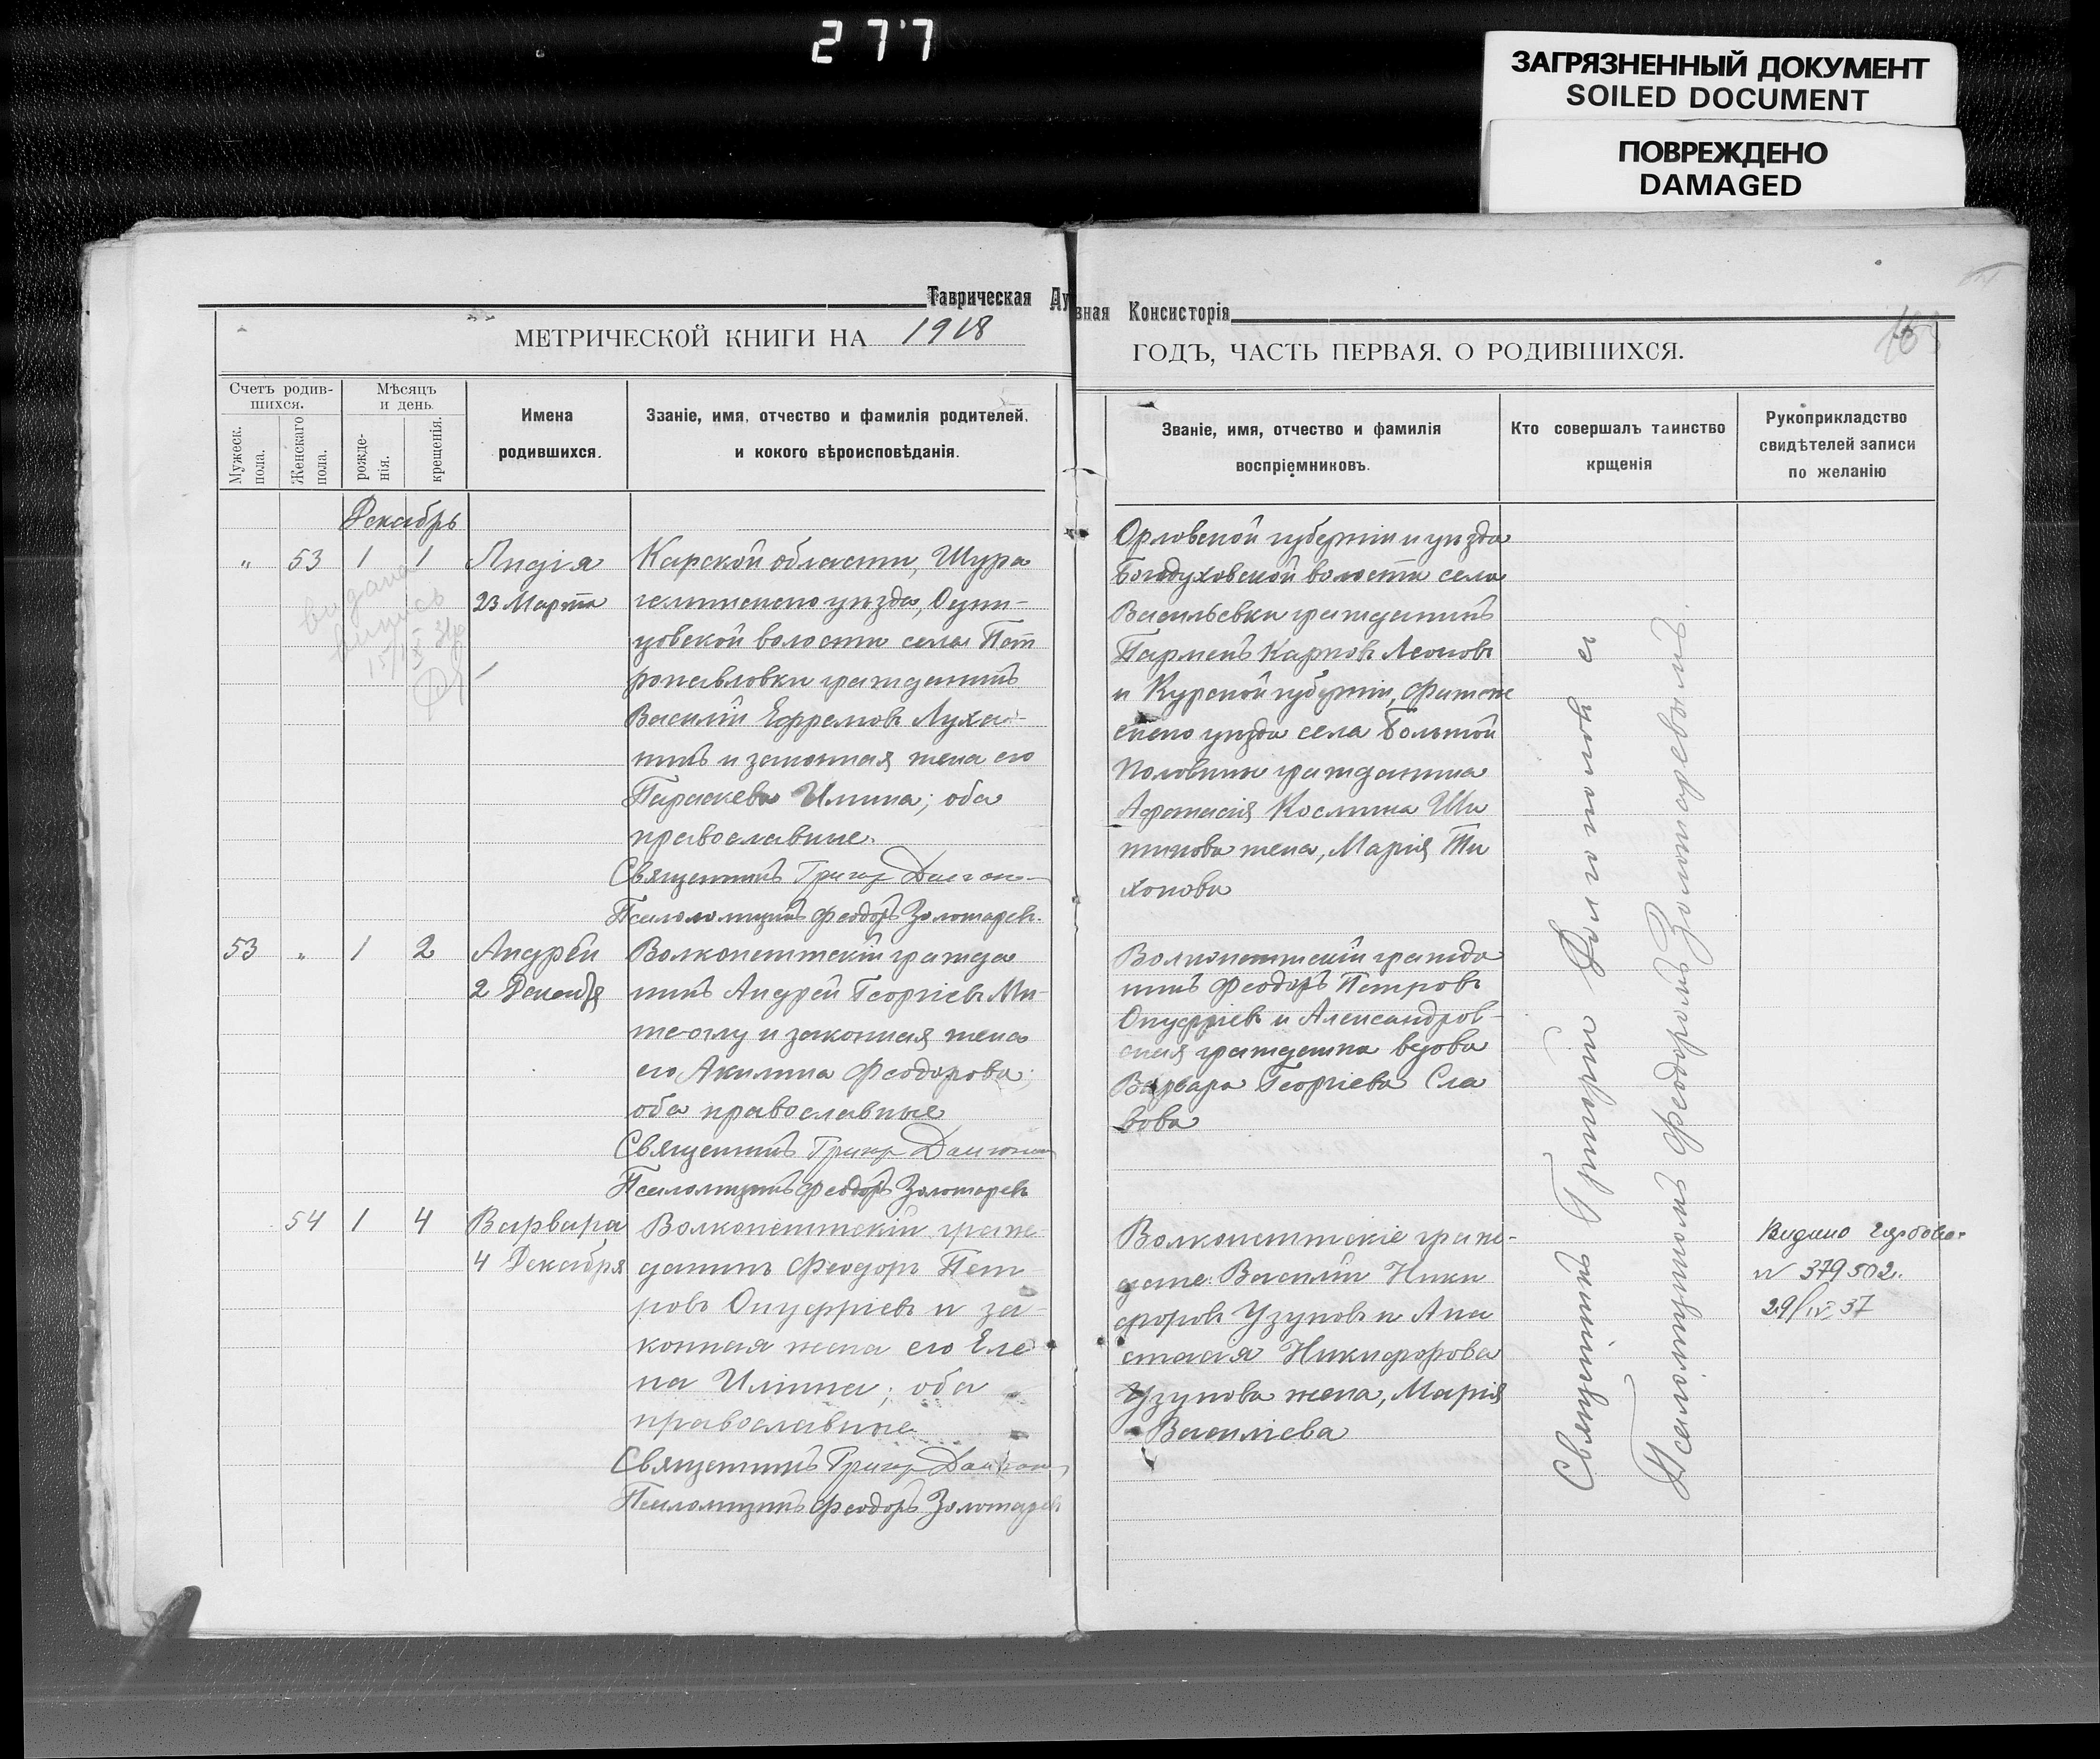 277
ЗАГРЯЗНЕННЫЙ ДОКУМЕНТ
SOILED DOCUMENT
ПОВРЕЖДЕНО
DAMAGED
Таврическая Ду
вная Консисторія
МЕТРИЧЕСКОЙ КНИГИ НА 1918
ГОДЪ, ЧАСТЬ ПЕРВАЯ. О РОДИВШИХСЯ.
Счетъ родив-
шихся.
Мужеск.
пола.
Женскаго
пола.
Мѣсяцъ
и день.
рожде-
нія.
крещенія.
Имена
родившихся.
Званіе, имя, отчество и фамилія родителей,
и кокого вѣроисповѣданія.
Званіе, имя, отчество и фамилія
воспріемниковъ.
Кто совершалъ таинство
крщенія
Рукоприкладство
свидѣтелей записи
по желанію
Декабрь
" 53 1 1
Лидія
23 Марта
Карской области, Шура
гельскаго уѣзда,
цовской волости села Пет
ропавловки гражданинъ
Василій Ефремовъ Лухи-
нинъ и законная жена его
Параскева Илiина; оба
православные.
Священникъ Григор
Псаломщикъ Феодоръ Золотарев.
Орловской губерніи и уѣзда
Богодуховской волости села
Васильевки гражданинъ
Парменъ Карповъ Леоновъ
и Курской губерніи, Фатеж
скаго уѣзда села Большой
Половины гражданина
Афанасія Косьмина Ши
жена, Марія Ти
хонова
выдана
выпись
53 " 1 2
Андрей
2 Декабря
Волконештскій гражда
нинъ Андрей Георгіевъ Ми-
те-оглу и законная жена
его Акилина Феодорова;
оба православные
Священникъ Григор
Псаломщикъ Феодоръ Золотарев
Волконештскій гражда
нинъ Феодоръ Петровъ
Онуфріевъ и Александров-
ская гражданка вдова
Варвара Георгіева Сла
вова
54 1 4
Варвара
4 Декабря
Волконештскій граж-
данинъ Феодоръ Пет
ровъ Онуфріевъ и за-
конная жена его Еле
на Илiина; оба
православные
Священникъ Григор
Псаломщикъ Феодоръ Золотарев
Волконештскіе граж-
дане: Василій Ники
форовъ Узуновъ и Ана
стасія Никифорова
Узунова жена, Марія
Василіева
Священникъ Григорій съ
Псаломщикомъ Феодоромъ Золотаревымъ.
Видано
N 379502.
29/IV 37